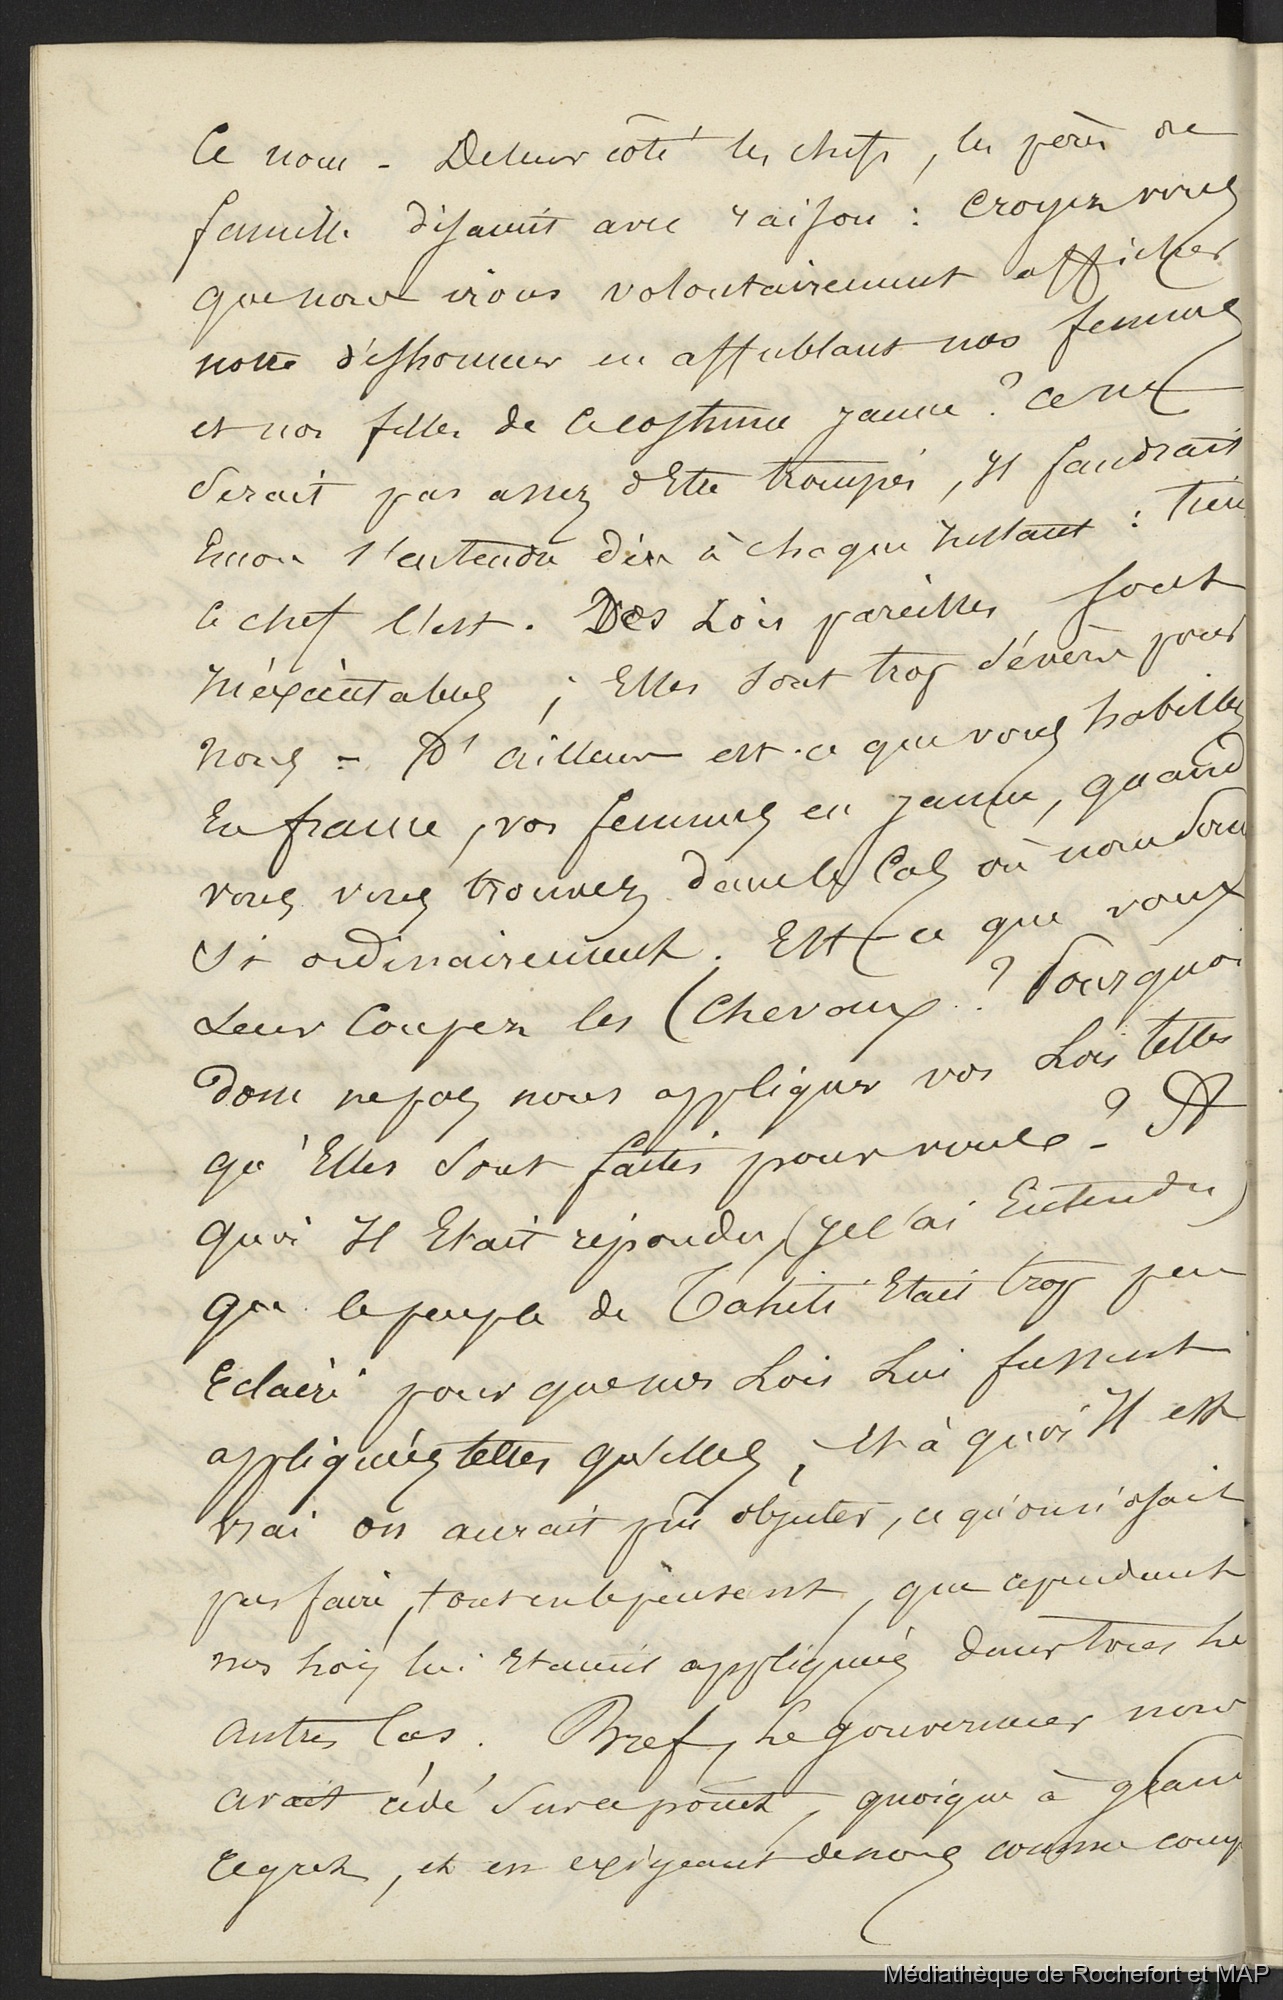 Ce nom - De leur côté les chefs, les pères de
famille disaient avec raison : Croyez vous
que nous irions volontairement afficher
notre déshonneur en affublant nos femmes
et nos filles de ce costume jaune ? Ce ne
Serait pas assez d'Etre trompés, Il faudrait
Encore s'entendre dire à chaque Instant : tien
le chef l'est. Des Lois pareilles sont
Inéxécutables ; Elles Sont trop Sévères pour
Nous - D'ailleurs est-ce que vous habillez
En france, vos femmes en jaune, quand
vous vous trouvez dans le Cas où nous Som
Si ordinairement. Est-ce que vous
Leur Coupez les Cheveux ? Pourquoi
Donc ne pas nous appliquer vos Lois telles
qu'Elles Sont faites pour vous ? - A
quoi Il Etait répondu, (je l'ai Entendu)
que le peuple de Tahiti Etait trop peu
Eclairé pour que nos Lois Lui fussent
appliquées telles qu'elles, Et à quoi Il est
vrai on aurait pu objecter, ce qu'on n'osait
pas faire, tout en le pensent, que cependant
nos Lois lui Etaient appliquées dans tous les
autres Cas. Bref, Le gouverneur nous
avait cédé Sur ce point, quoique à grand
regret, et en exigeant de nous comme comp
Médiathèque de Rochefort et MAP